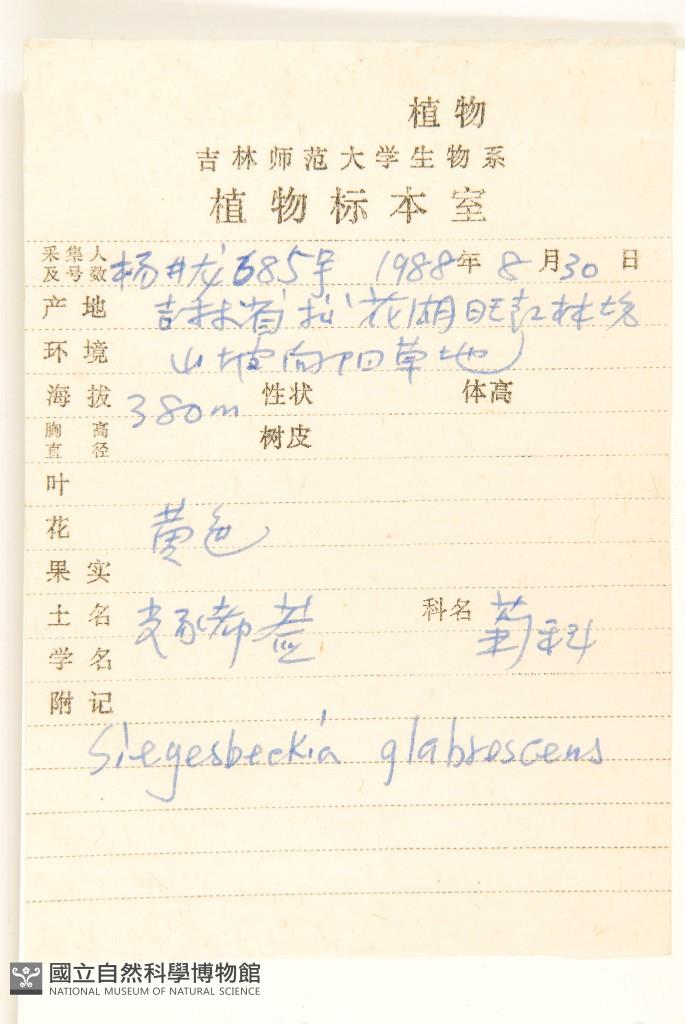 植物
吉林师范大学生物系
植物标本室
采集人及号数 杨井龙 685号 1988年8月30日
产地 吉林省松花湖旺起林场
环境 山坡向阳草地
海拔 380m 性状 体高
胸高直径 树皮
叶
花 黄色
果实
土名 豨莶 科名 菊科
学名
附记
Siegesbeckia glabrescens
國立自然科學博物館
NATIONAL MUSEUM OF NATURAL SCIENCE